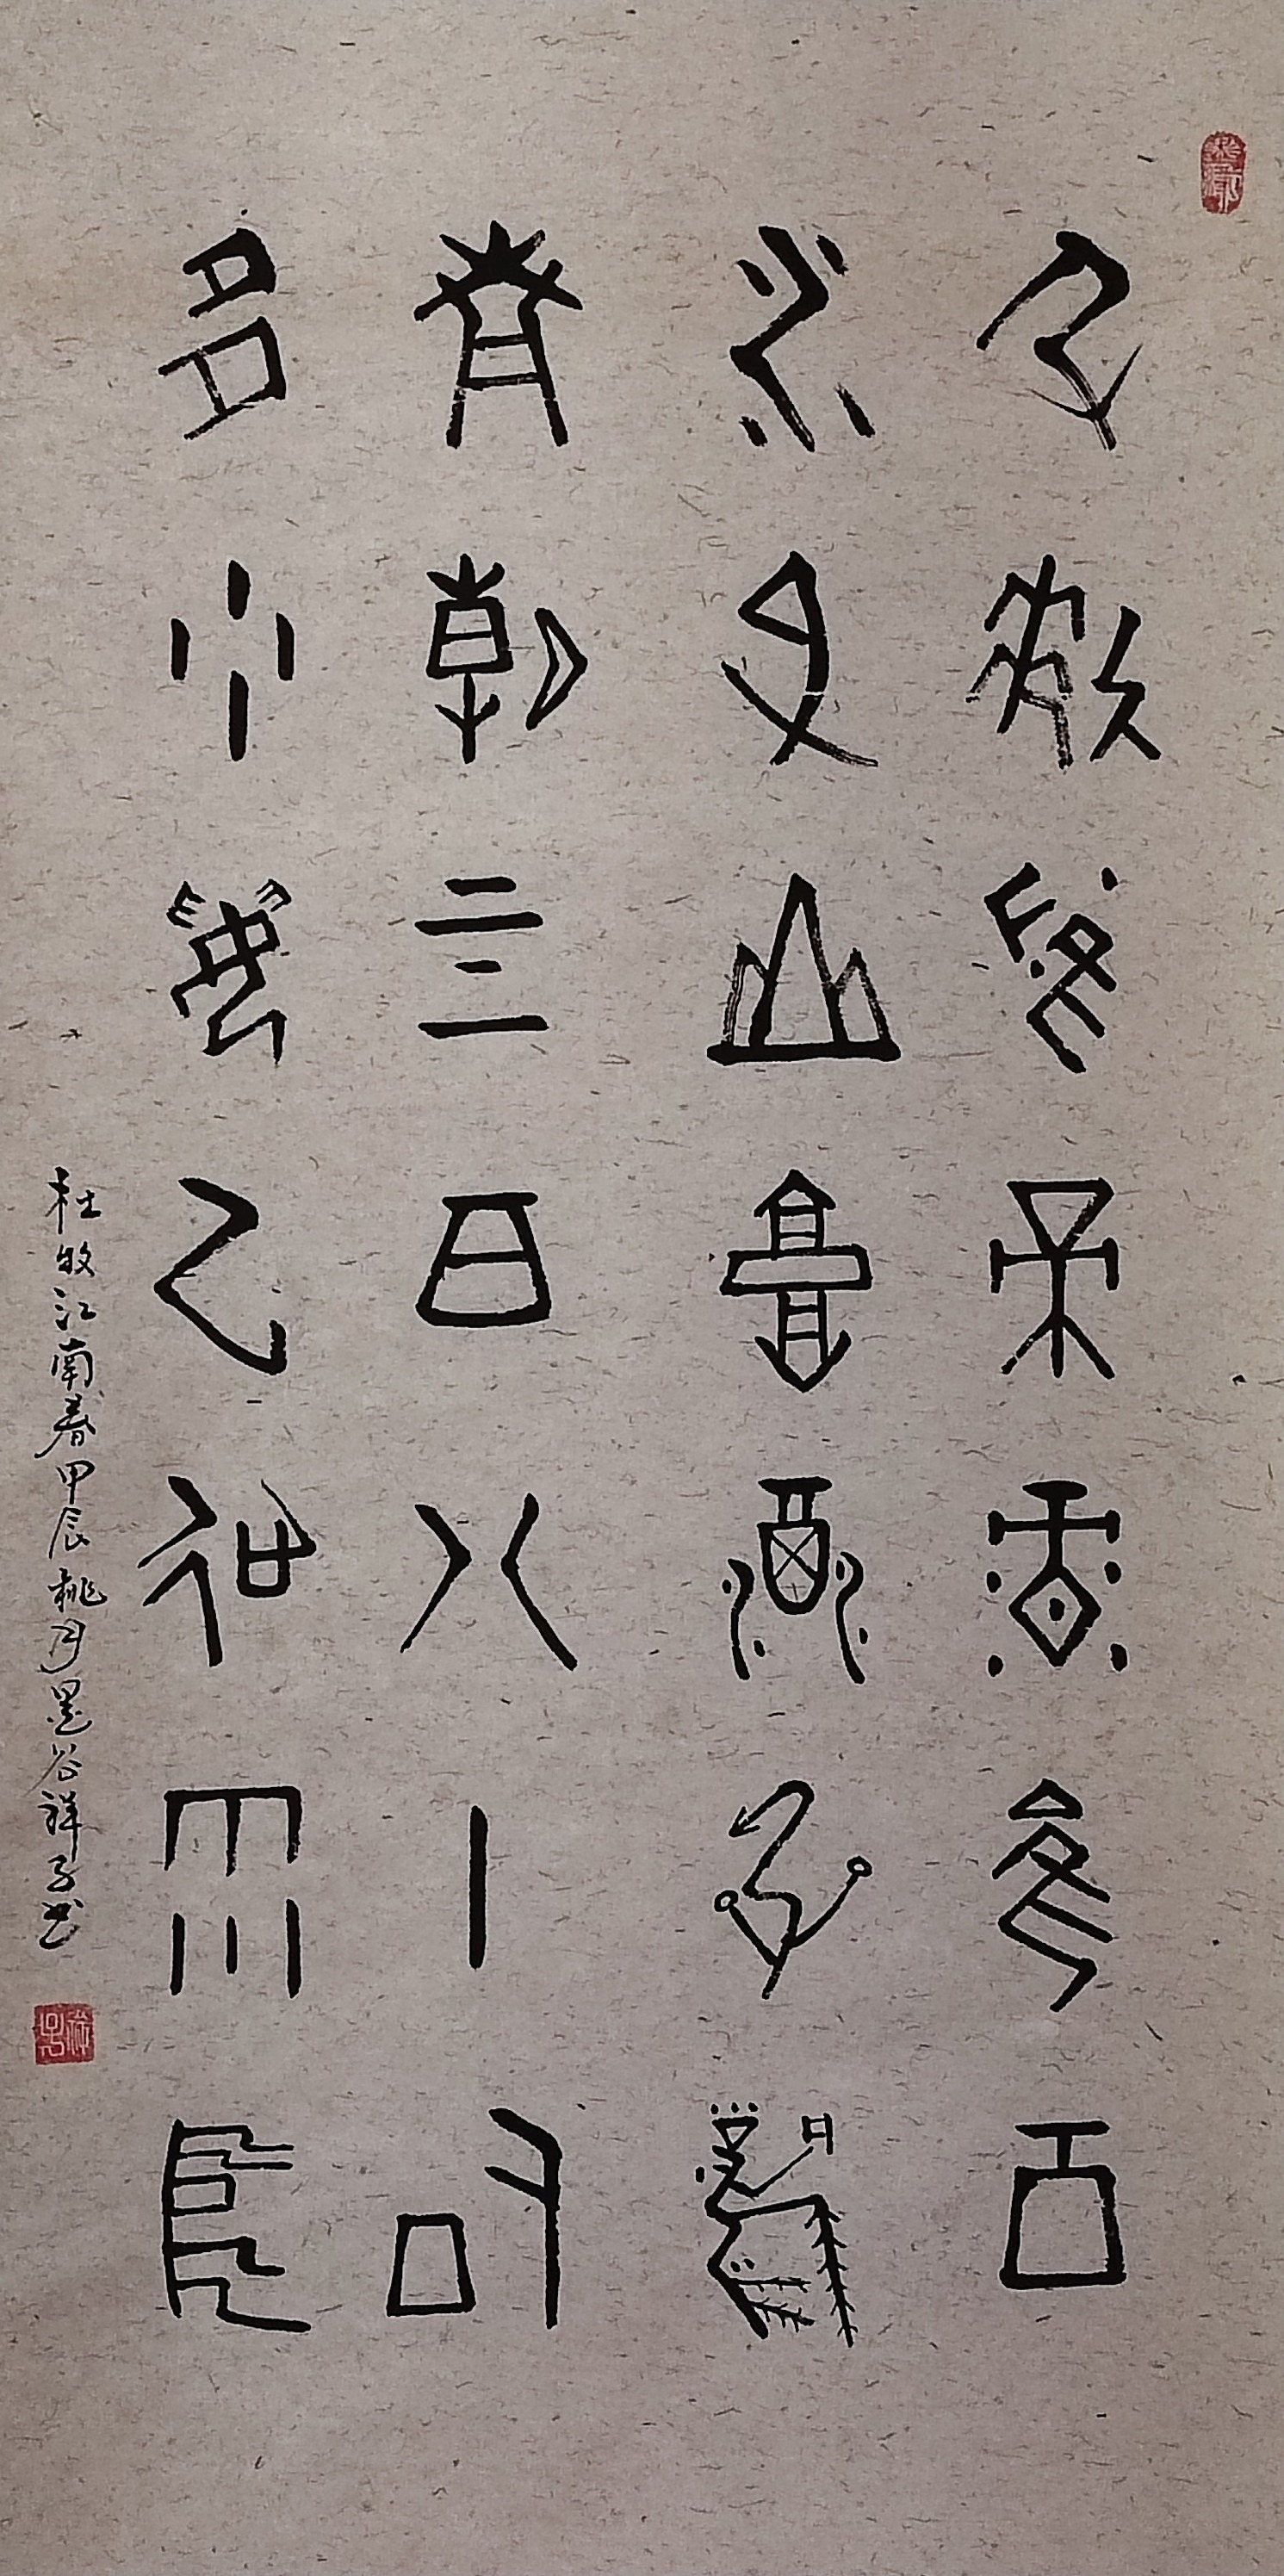 千里鶯啼綠映紅
水村山郭酒旗風
南朝四百八十寺
多少樓臺煙雨中
杜牧江南春甲辰桃月墨谷祥子书